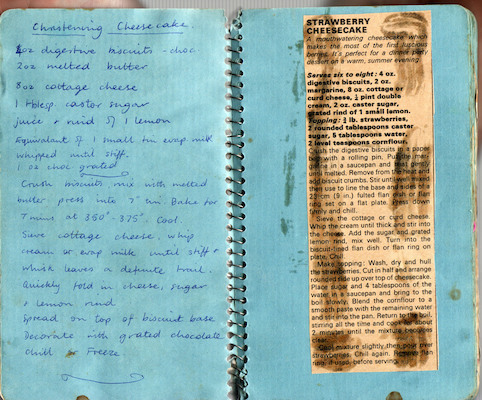 Christening Cheesecake.
4oz digestive biscuits - choc.
2oz melted butter
8oz cottage cheese
1 tblesp. castor sugar
juice + rind of 1 lemon
Equivalent of 1 small tin evap milk
whipped until stiff
1 oz choc grated
Crush biscuits mix with melted
butter press into 7" tin. Bake for
7 mins at 350°-375°. Cool.
Sieve cottage cheese, whip
cream or evap milk until stiff +
whisk leaves a definite trail.
Quickly fold in cheese, sugar
+ lemon rind
Spread on top of biscuit base
Decorate with grated chocolate
Chill or Freeze
STRAWBERRY
CHEESECAKE
A mouthwatering cheesecake which
makes the most of the first luscious
berries. It's perfect for a dinner party
dessert on a warm, summer evening
Serves six to eight: 4 oz.
digestive biscuits, 2 oz.
margarine, 8 oz. cottage or
curd cheese, ¼ pint double
cream, 2 oz. caster sugar,
grated rind of 1 small lemon.
Topping: ½ lb. strawberries,
2 rounded tablespoons caster
sugar, 5 tablespoons water,
2 level teaspoons cornflour.
Crush the digestive biscuits in a paper
with a rolling pin. Put
in a saucepan and heat gently
until melted. Remove from the heat and
biscuit crumbs. Stir until well mixed
then use to line the base and sides of a
23 cm (9 in.) fluted flan dish or flan
ring set on a flat plate. down
firmly and chill.
Sieve the cottage or curd cheese.
Whip the cream until thick and stir into
the cheese. Add the sugar and grated
lemon rind, mix well. Turn into the
biscuit-lined flan dish or flan ring on
plate. Chill.
Make topping: Wash, dry and hull
the strawberries. Cut in half and arrange
rounded side up over top of cheesecake.
Place sugar and 4 tablespoons of the
water in a saucepan and bring to the
boil slowly. Blend the cornflour to a
smooth paste with the remaining water
and stir into the pan. Return to the boil,
stirring all the time and cook for about
2 minutes until the mixture becomes
clear.
Cool mixture slightly then pour over
strawberries. Chill again. Remove flan
ring, if used, before serving.